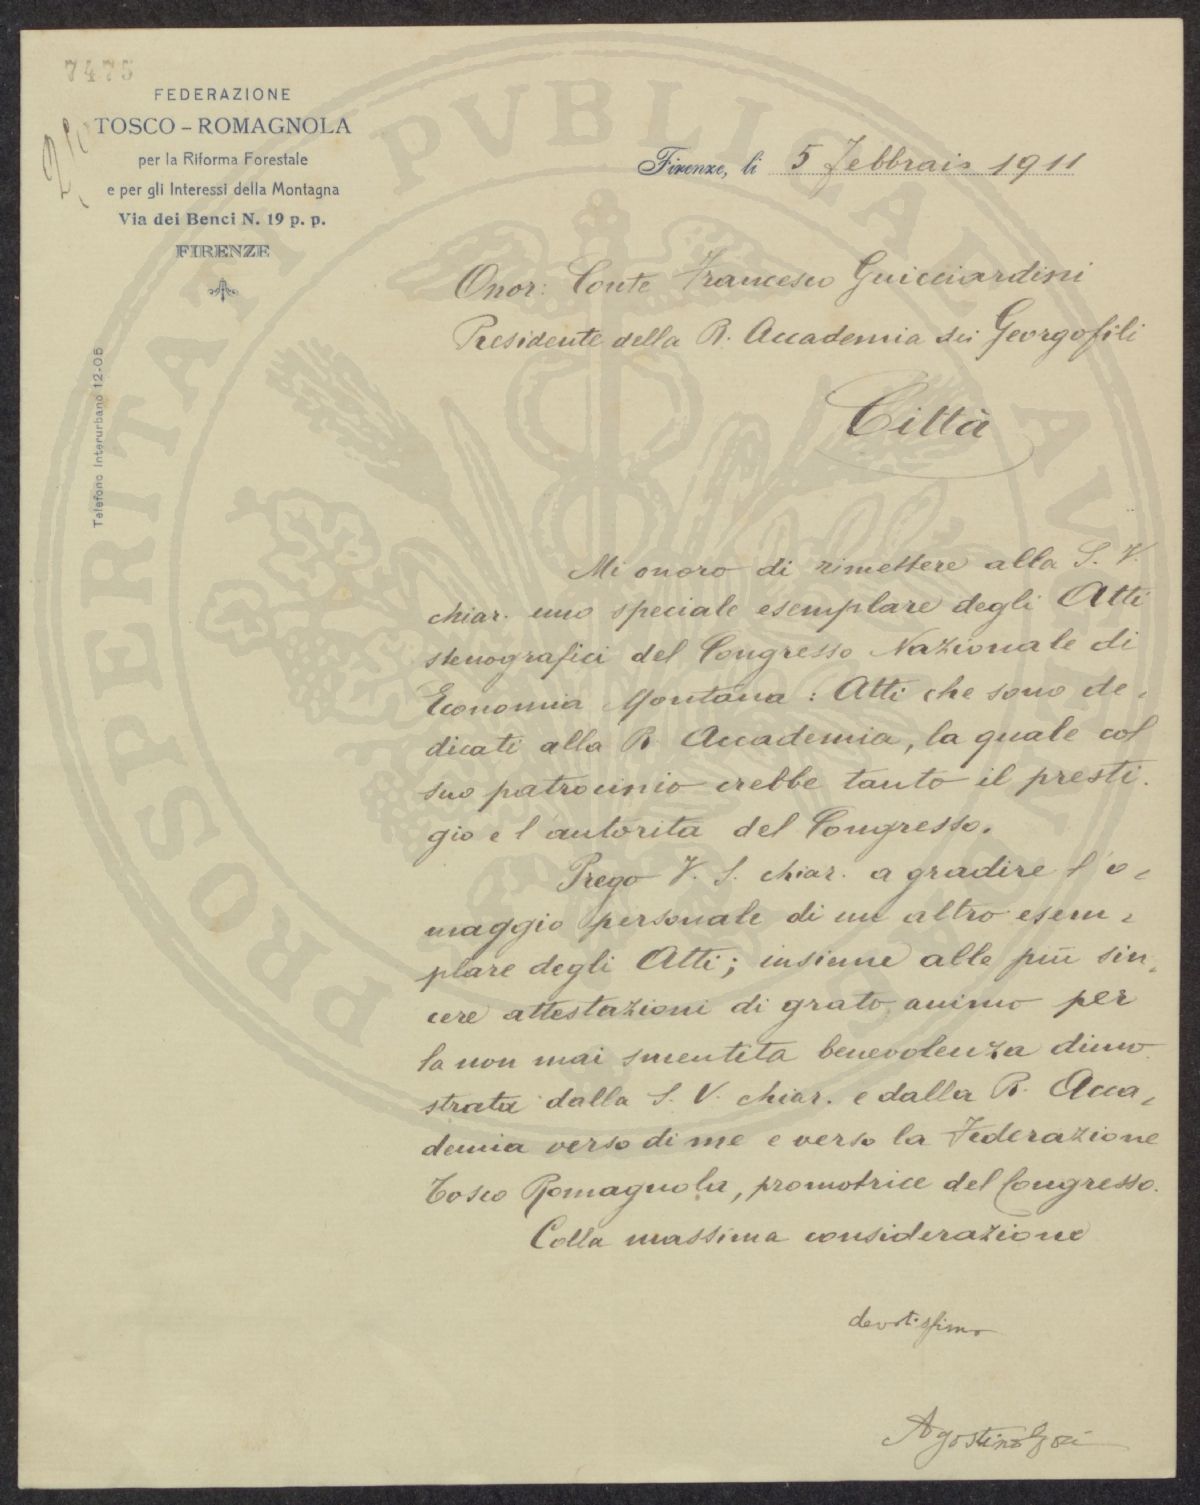 7475
FEDERAZIONE
TOSCO-ROMAGNOLA
per la Riforma Forestale
e per gli Interessi della Montagna
Via dei Benci N. 19 p. p.
FIRENZE
Telefono Interurbano 12-05
Firenze, li 5 Febbraio 1911
Onor: Conte Francesco Guicciardini
Presidente della R. Accademia dei Georgofili
Città
Mi onoro di rimettere alla S. V.
chiar. uno speciale esemplare degli Atti
stenografici del Congresso Nazionale di
Economia Montana: Atti che sono de-
dicati alla R. Accademia, la quale col
suo patrocinio crebbe tanto il presti-
gio e l'autorità del Congresso.
Prego V. S. chiar. a gradire l'o-
maggio personale di un altro esem-
plare degli Atti; insieme alle più sin-
cere attestazioni di grato animo per
la non mai smentita benevolenza dimo
strata dalla S. V. chiar. e dalla R. Acca-
demia verso di me e verso la Federazione
Tosco Romagnola, promotrice del Congresso.
Colla massima considerazione
devotissimo
Agostino Gori
PROSPERITATI PVBLICAE AVGENDAE